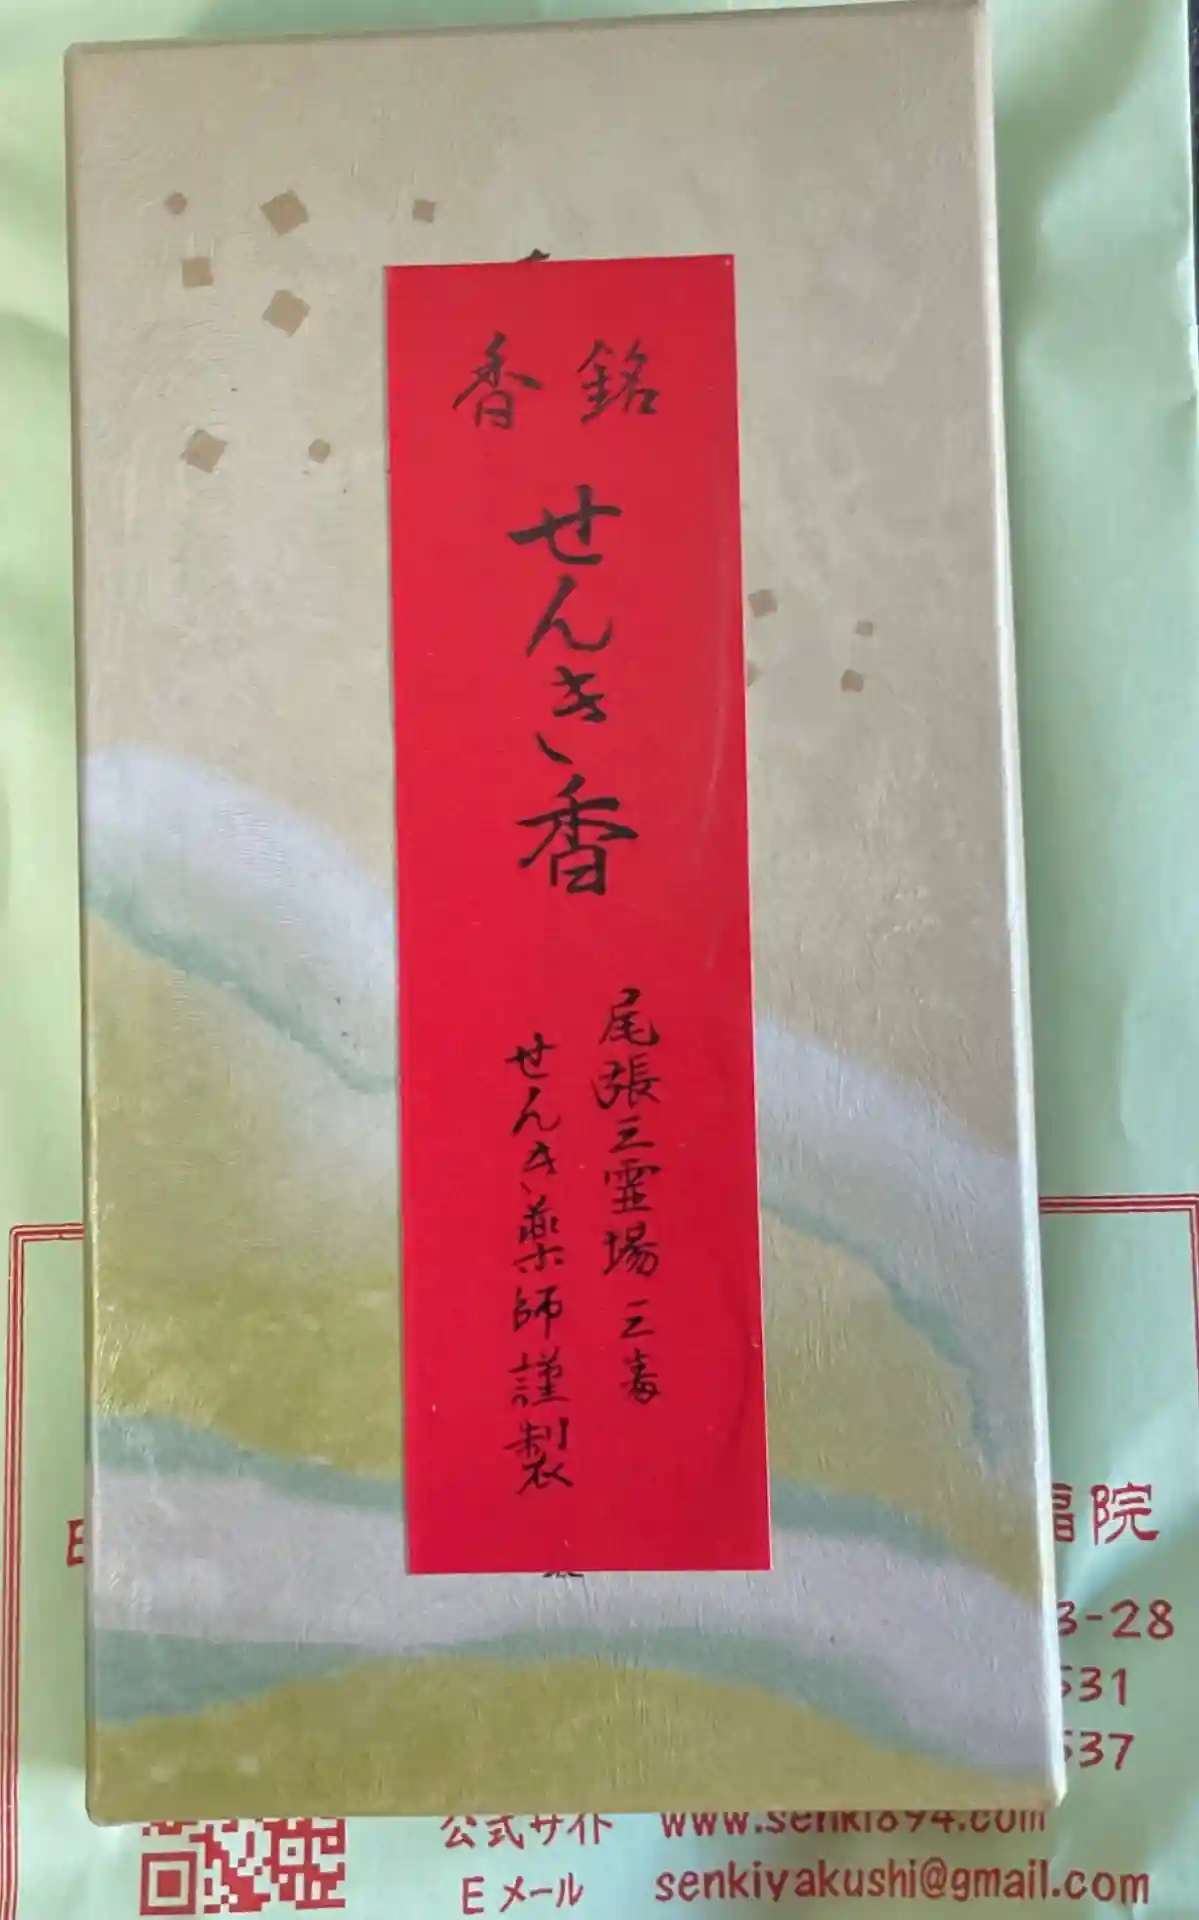 銘香
せんき香
尾張三霊場 三毒
せんき薬師謹製
福院
3-28
531
537
公式サイト www.senki894.com
Eメール senkiyakushi@gmail.com